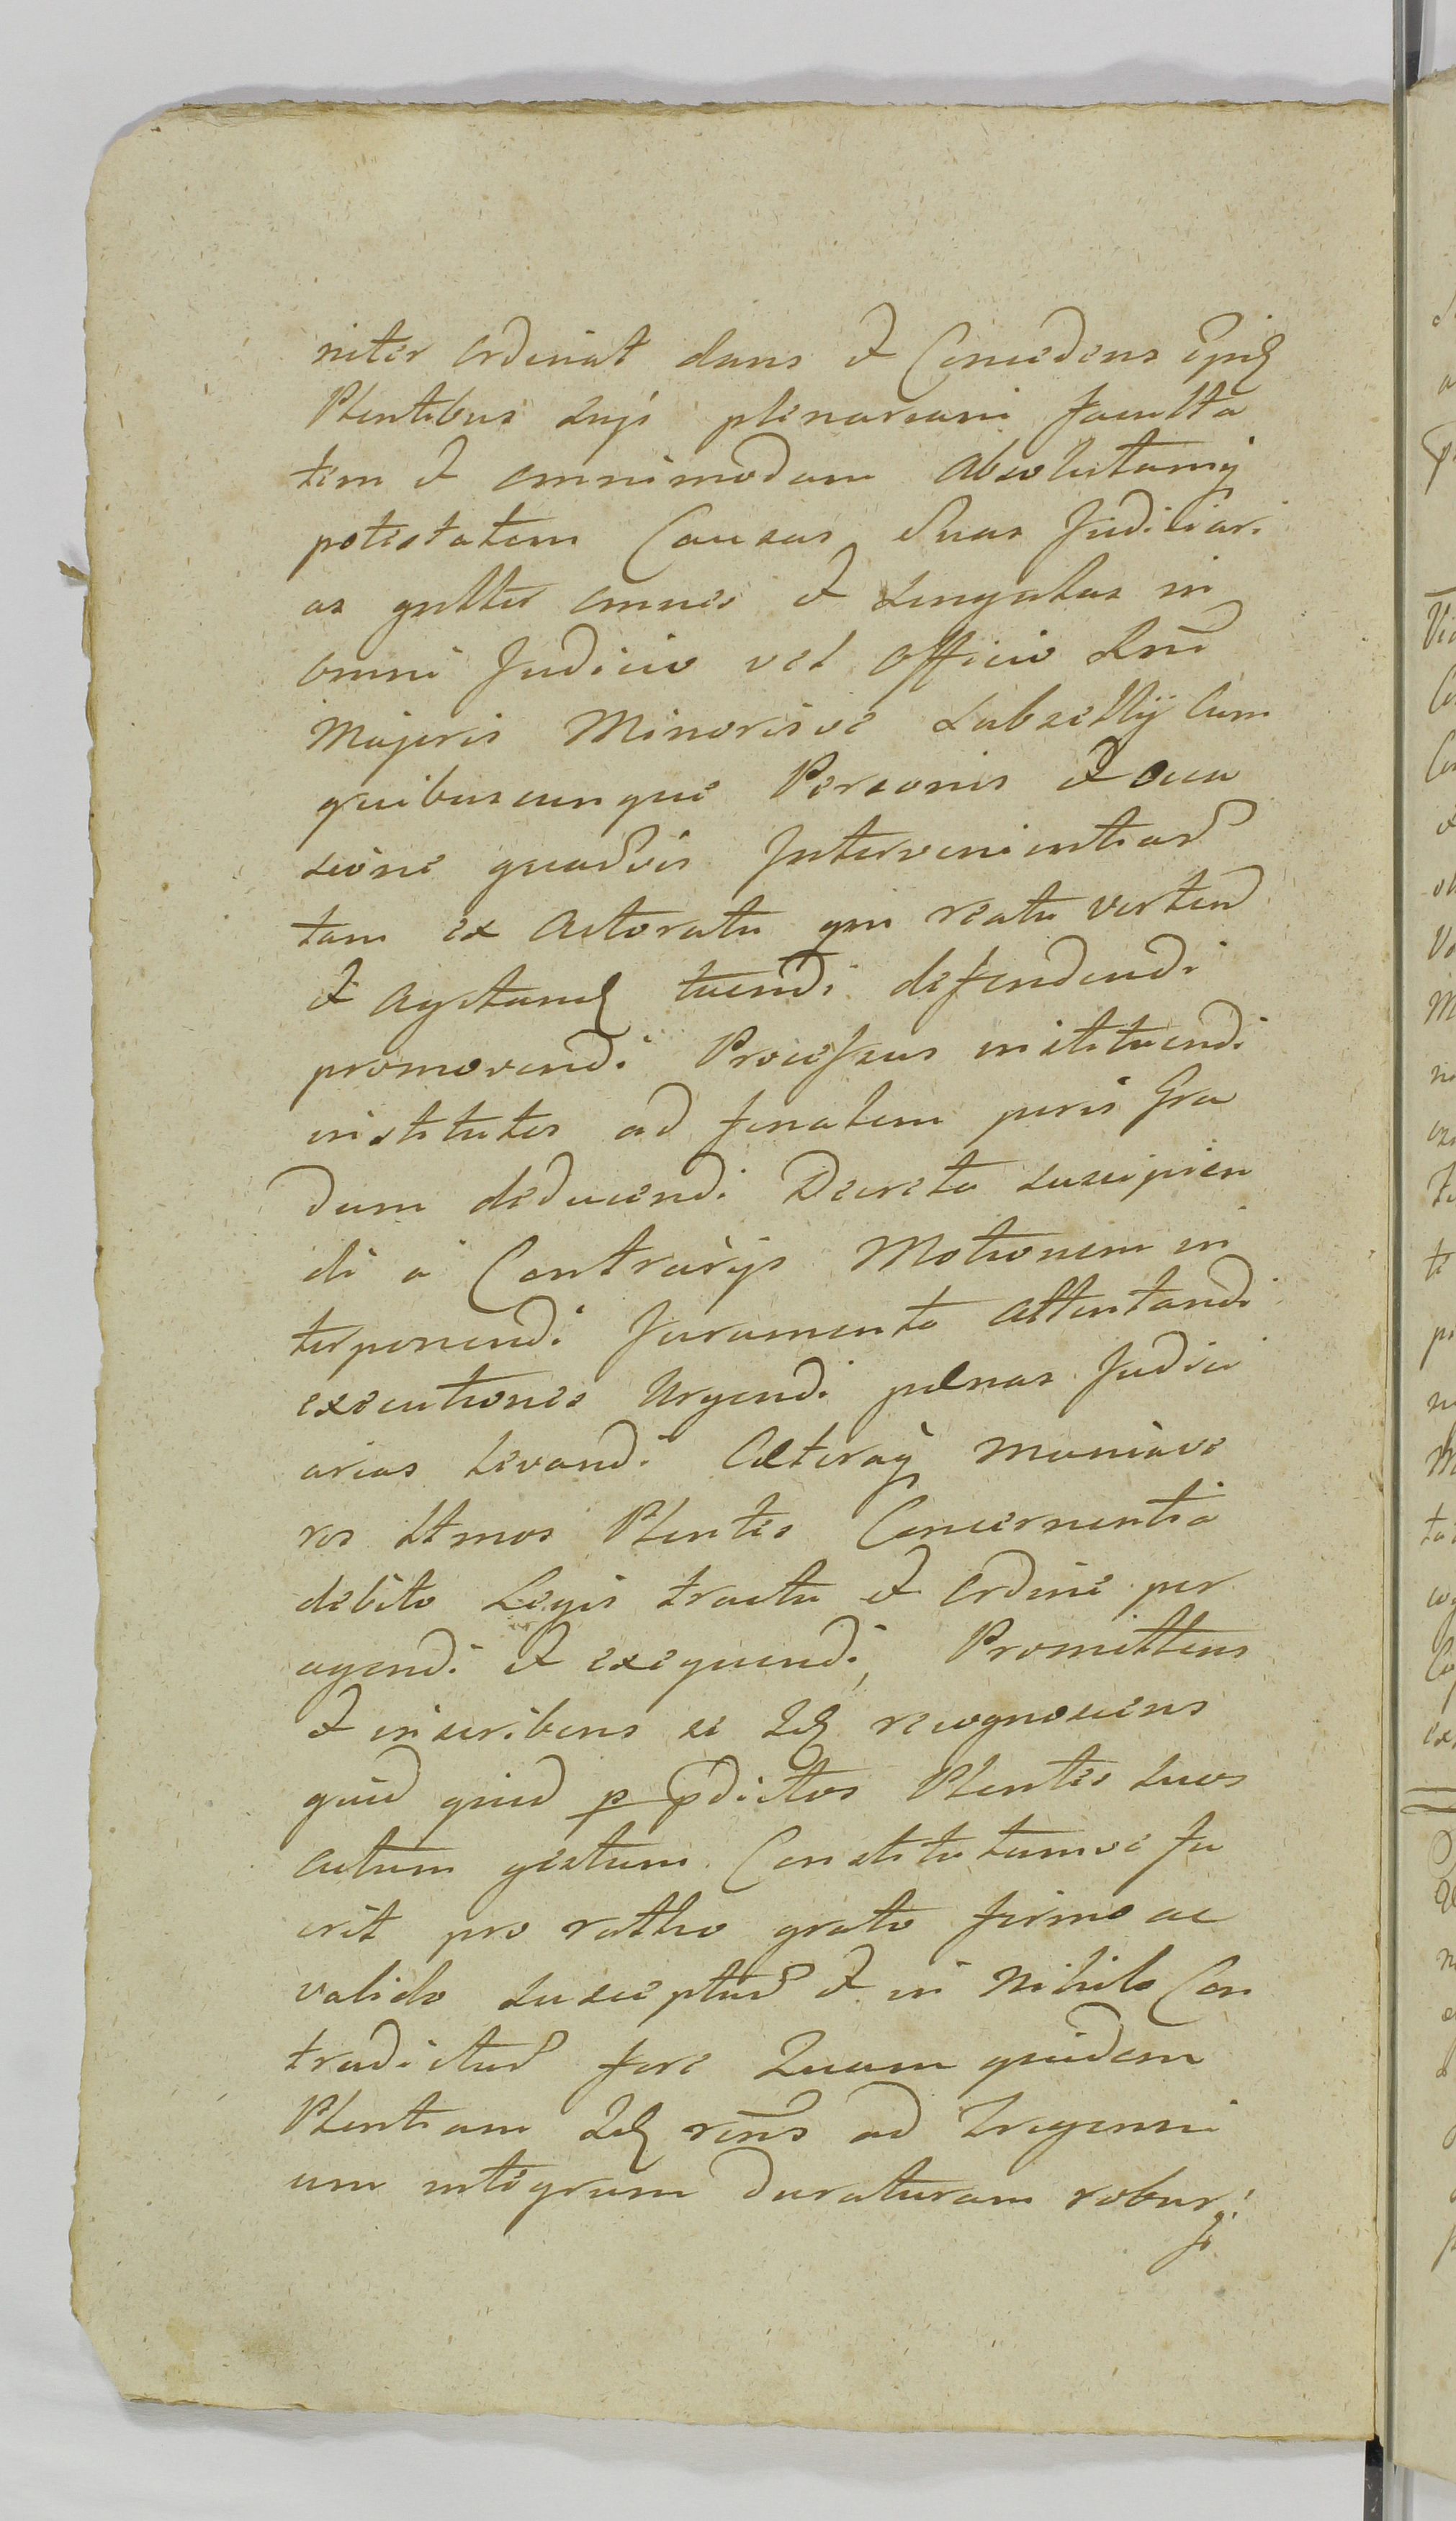 niter ordinat dans et Concedens
Plentibus suis plenariam faculta
tem et omnimodam absolutamq
potestatem Causas Suas Judiciari
as gnltter omnes et singulas in
omni Judicio vel officio
Majoris Minorisve Subsellij cum
quibuscunque Personis et occa
sione quadvis Intervenientiad
tam ex actoratu qm reatu vertend
et agitand tuendi defendendi
promovendi Processus instituendi
institutos ad finalem juris Gra
dum deducendi Decreta suscipien
di a Contrarijs Motionem in
terponendi Juramenta attentandi
executiones Urgendi pænas Judici
arias levandi Cæteraq muniave
ros ltmos Plentes Concernentia
debito Legis tractu et ordine per
agendi et exequendi, Promittens
et inscribens se Idq recognoscens
quid quid p pdictos Plentes suos
actum gestum Constitutumve fu
erit pro ratho grato firmo ac
valido susceptud et in Nihilo Con
tradictud fore Suam quidem
Plentiam Idq ad Trigenni
um integrum duraturam robur